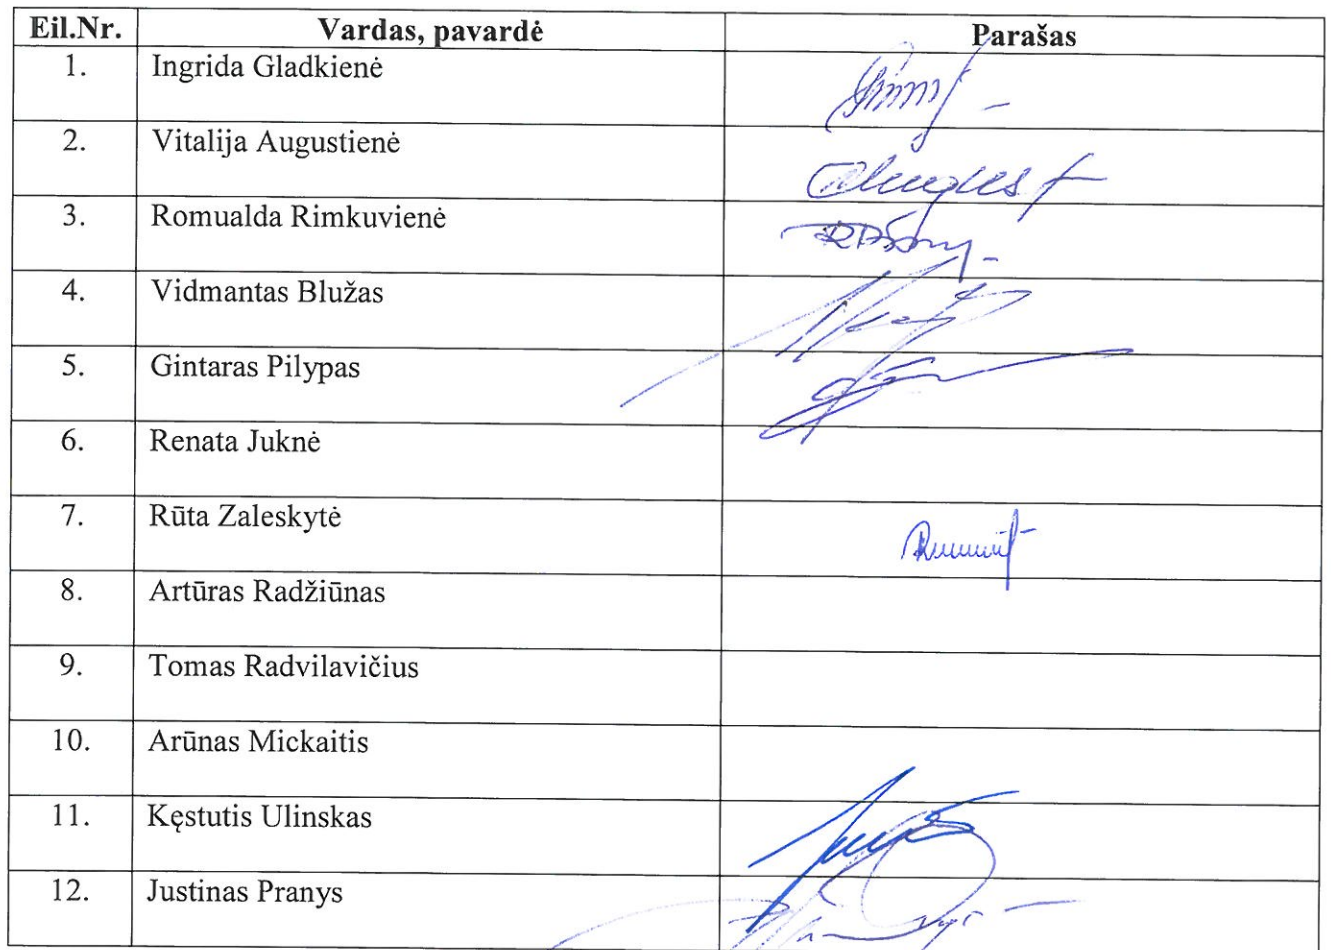 Eil.Nr. Vardas, pavardė Parašas
1. Ingrida Gladkienė
2. Vitalija Augustienė
3. Romualda Rimkuvienė
4. Vidmantas Blužas
5. Gintaras Pilypas
6. Renata Juknė
7. Rūta Zaleskytė
8. Artūras Radžiūnas
9. Tomas Radvilavičius
10. Arūnas Mickaitis
11. Kęstutis Ulinskas
12. Justinas Pranys